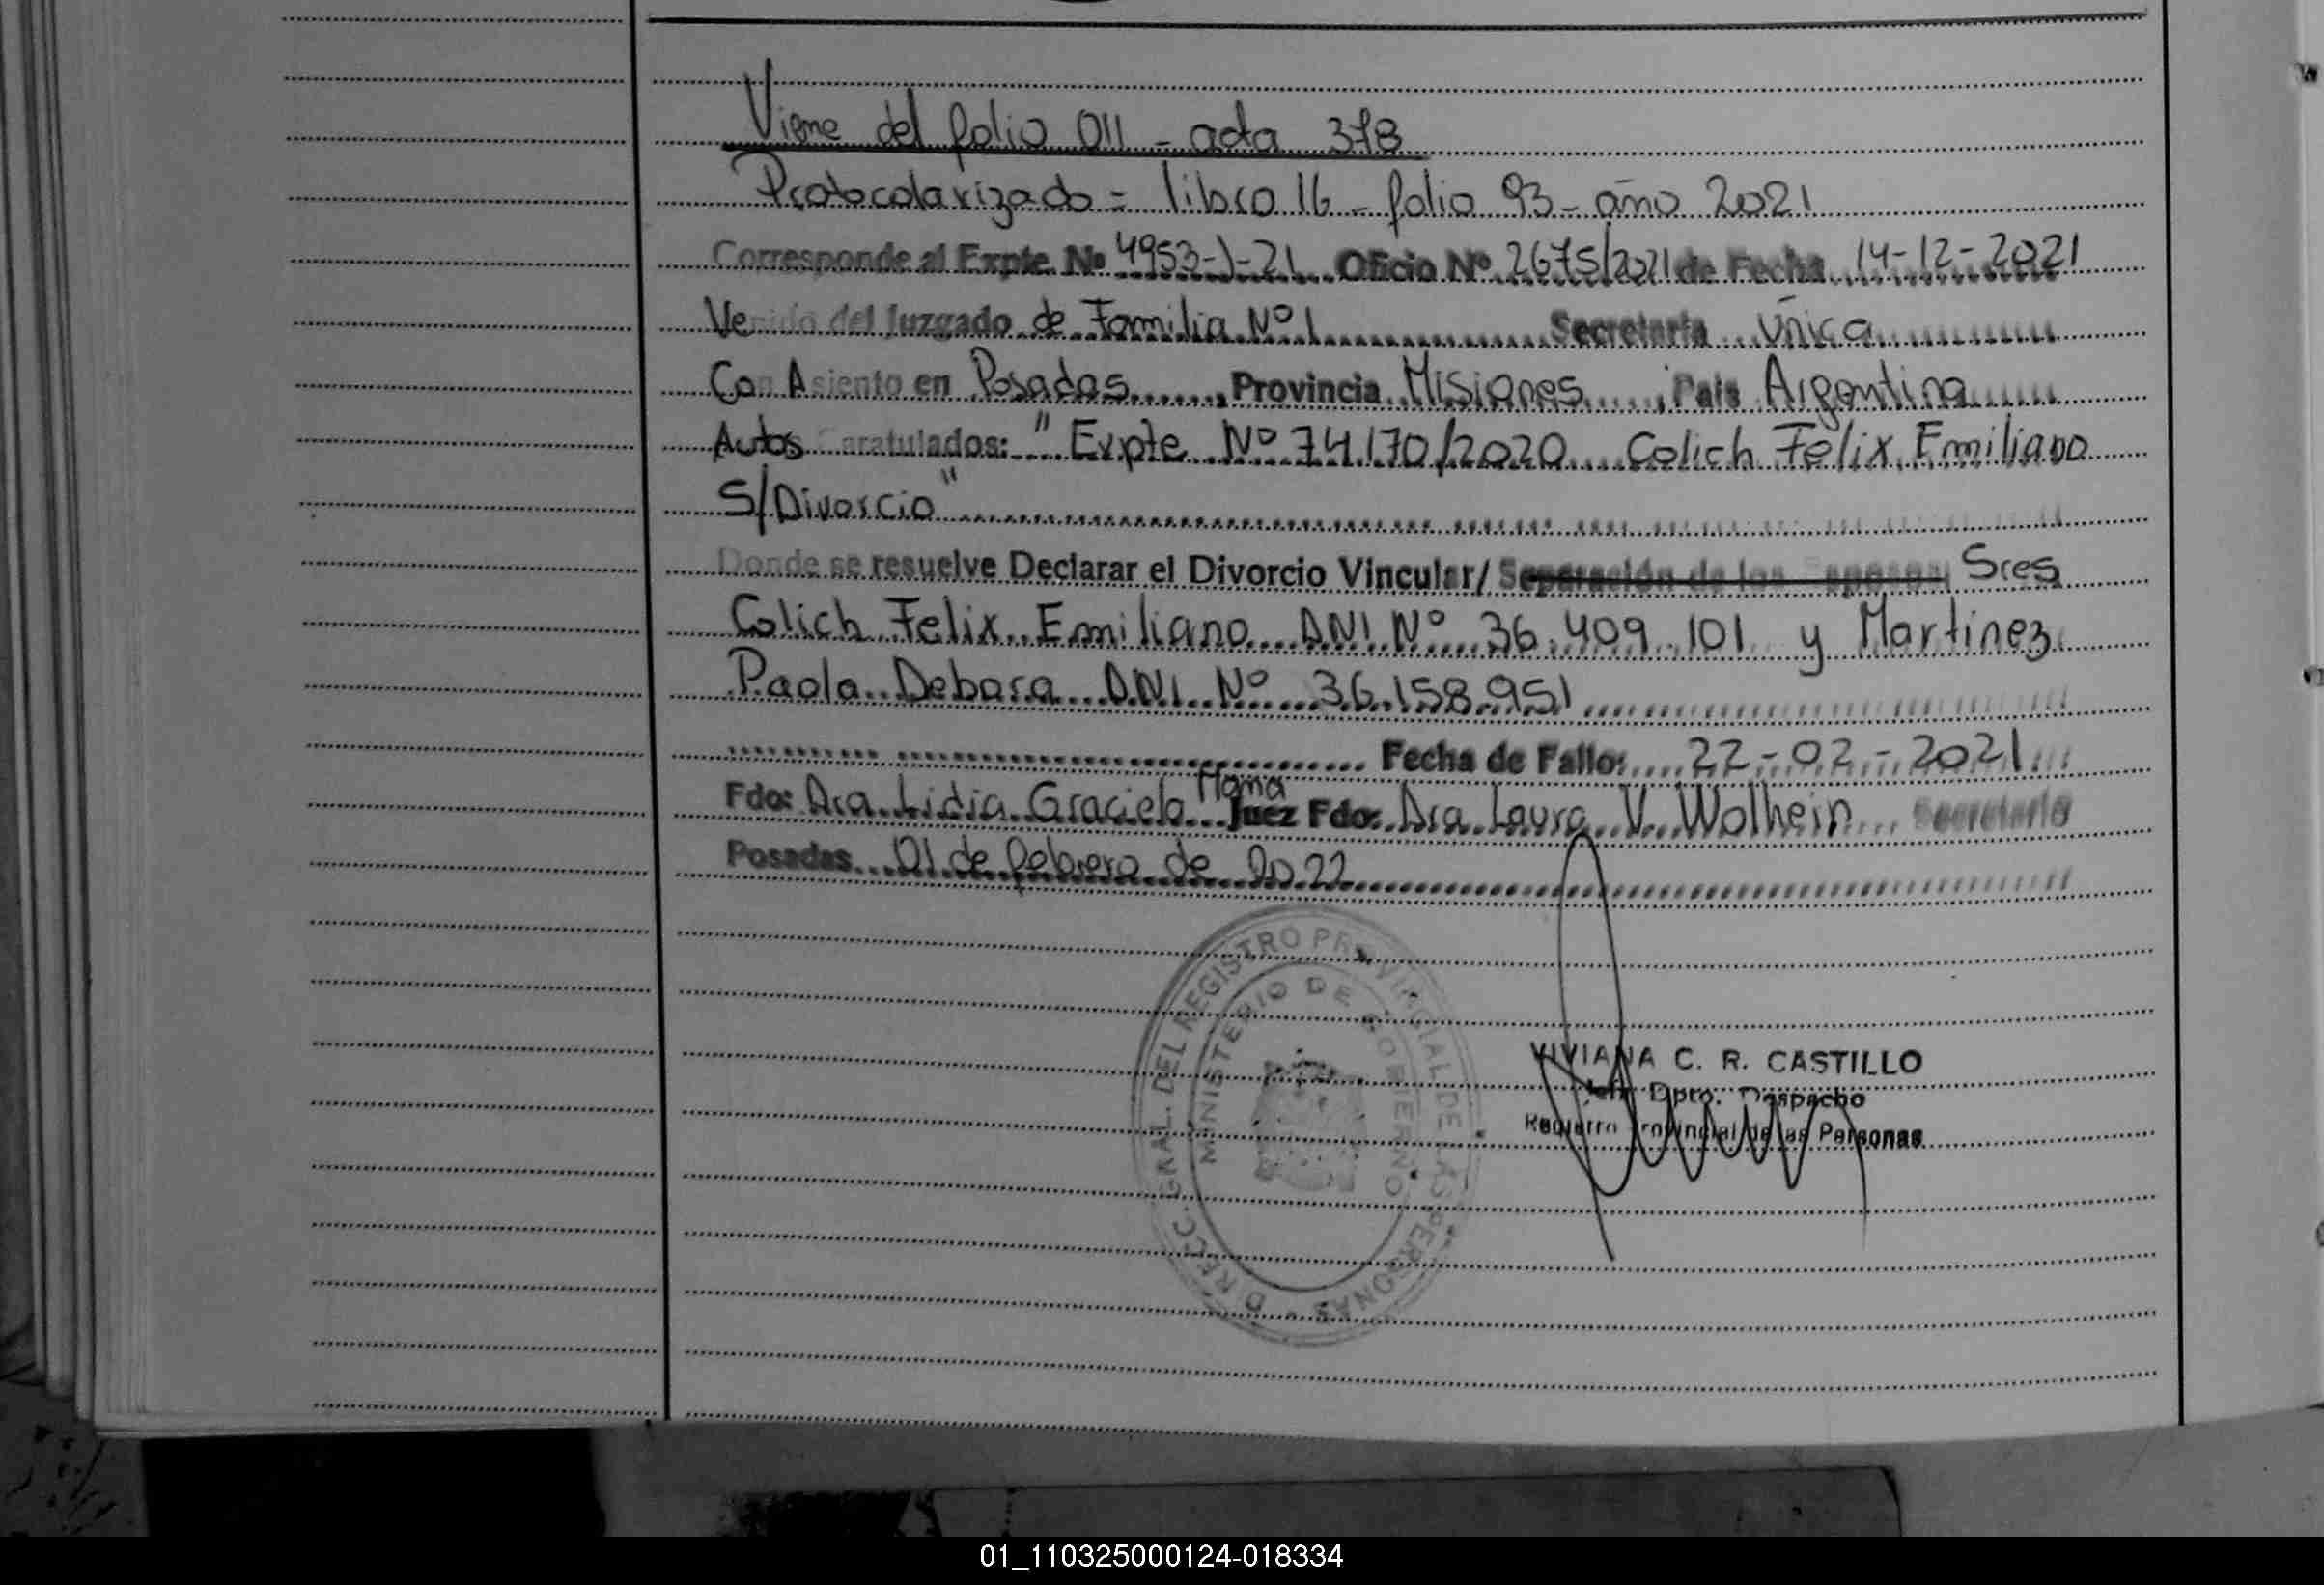 Viene del folio 011 - acta 378
Protocolarizado = libro 16 - folio 93 - año 2021
Corresponde al Expte. Nº 4953-J-21 Oficio Nº 2675/2021 de Fecha 14-12-2021
Venido del Juzgado de Familia Nº 1 Secretaria Única
Con Asiento en Posadas, Provincia Misiones, Pais Argentina
Autos Caratulados: "Expte Nº 74170/2020 Colich Felix Emiliano
S/Divorcio"
Donde se resuelve Declarar el Divorcio Vincular/ Separación de los Esposos Sres
Colich Felix Emiliano DNI Nº 36.409.101 y Martinez
Paola Debora DNI Nº 36.158.951
Fecha de Fallo: 22-02-2021
Fdo: Dra. Lidia Graciela Juez Fdo: Dra. Laura V. Wolhein Secretario
Posadas 01 de febrero de 2022
DIRECC. GRAL. DEL REGISTRO PROVINCIAL DE LAS PERSONAS
MINISTERIO DE GOBIERNO
VIVIANA C. R. CASTILLO
Jefa Dpto. Despacho
Registro Provincial de las Personas
01_110325000124-018334